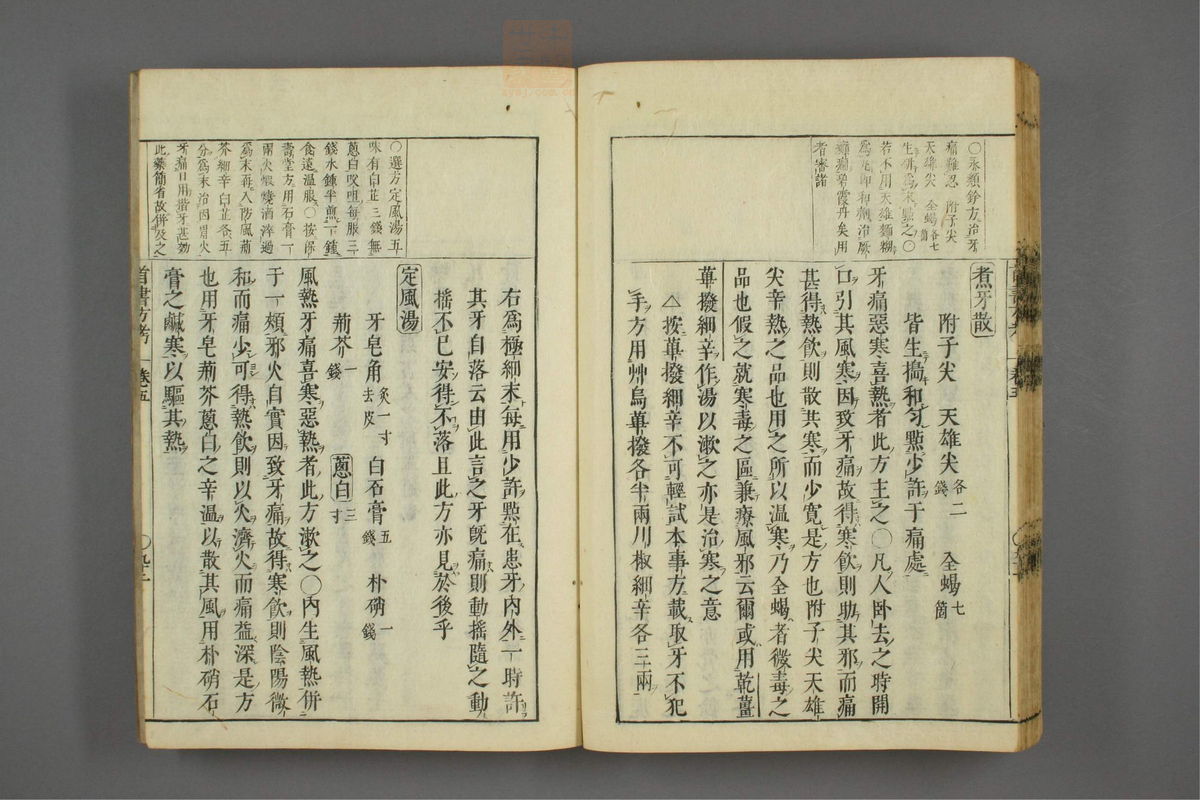 ○永類鈐方治牙
痛難忍 附子尖
天雄尖 全蝎各七箇
生研爲末點之○
若不用天雄麵糊
者審諸
煮牙散
附子尖 天雄尖各二錢 全蝎七箇
皆生搗和勻點少許于痛處
牙痛惡寒喜熱者此方主之○凡人卧去之時開
口引其風寒因致牙痛故得寒飲則助其邪而痛
甚得熱飲則散其寒而少寬是方也附子尖天雄
尖辛熱之品也用之所以溫寒乃全蝎者微毒之
品也假之就寒毒之區兼療風邪云爾或用乾薑
蓽撥細辛作湯以漱之亦是治寒之意
△按蓽撥細辛不可輕試本事方載取牙不犯
手方用艸烏蓽撥各半兩川椒細辛各三兩
○選方定風湯五
味有白芷三錢無
蔥白㕮咀每服三
錢水鍾半煎一鍾
食遠溫服○按保
壽堂方用石膏一
兩火煆燒酒淬過
爲末再入防風荊
芥細辛白芷各五
分爲末治因胃火
牙痛日用揩牙甚効
此藥簡省故併及之
右爲極細末每用少許點在患牙內外一時許
其牙自落云由此言之牙既痛則動搖隨之動
搖不已安得不落且此方亦見於後乎
定風湯
牙皂角炙一寸去皮 白石膏五錢 朴硝一錢
荊芥一錢 蔥白三寸
風熱牙痛喜寒惡熱者此方漱之○內生風熱併
于一頰邪火自實因致牙痛故得寒飲則陰陽微
和而痛少可得熱飲則以火濟火而痛益深是方
也用牙皂荊芥蔥白之辛溫以散其風用朴硝石
膏之鹹寒以驅其熱
首書方考 卷五